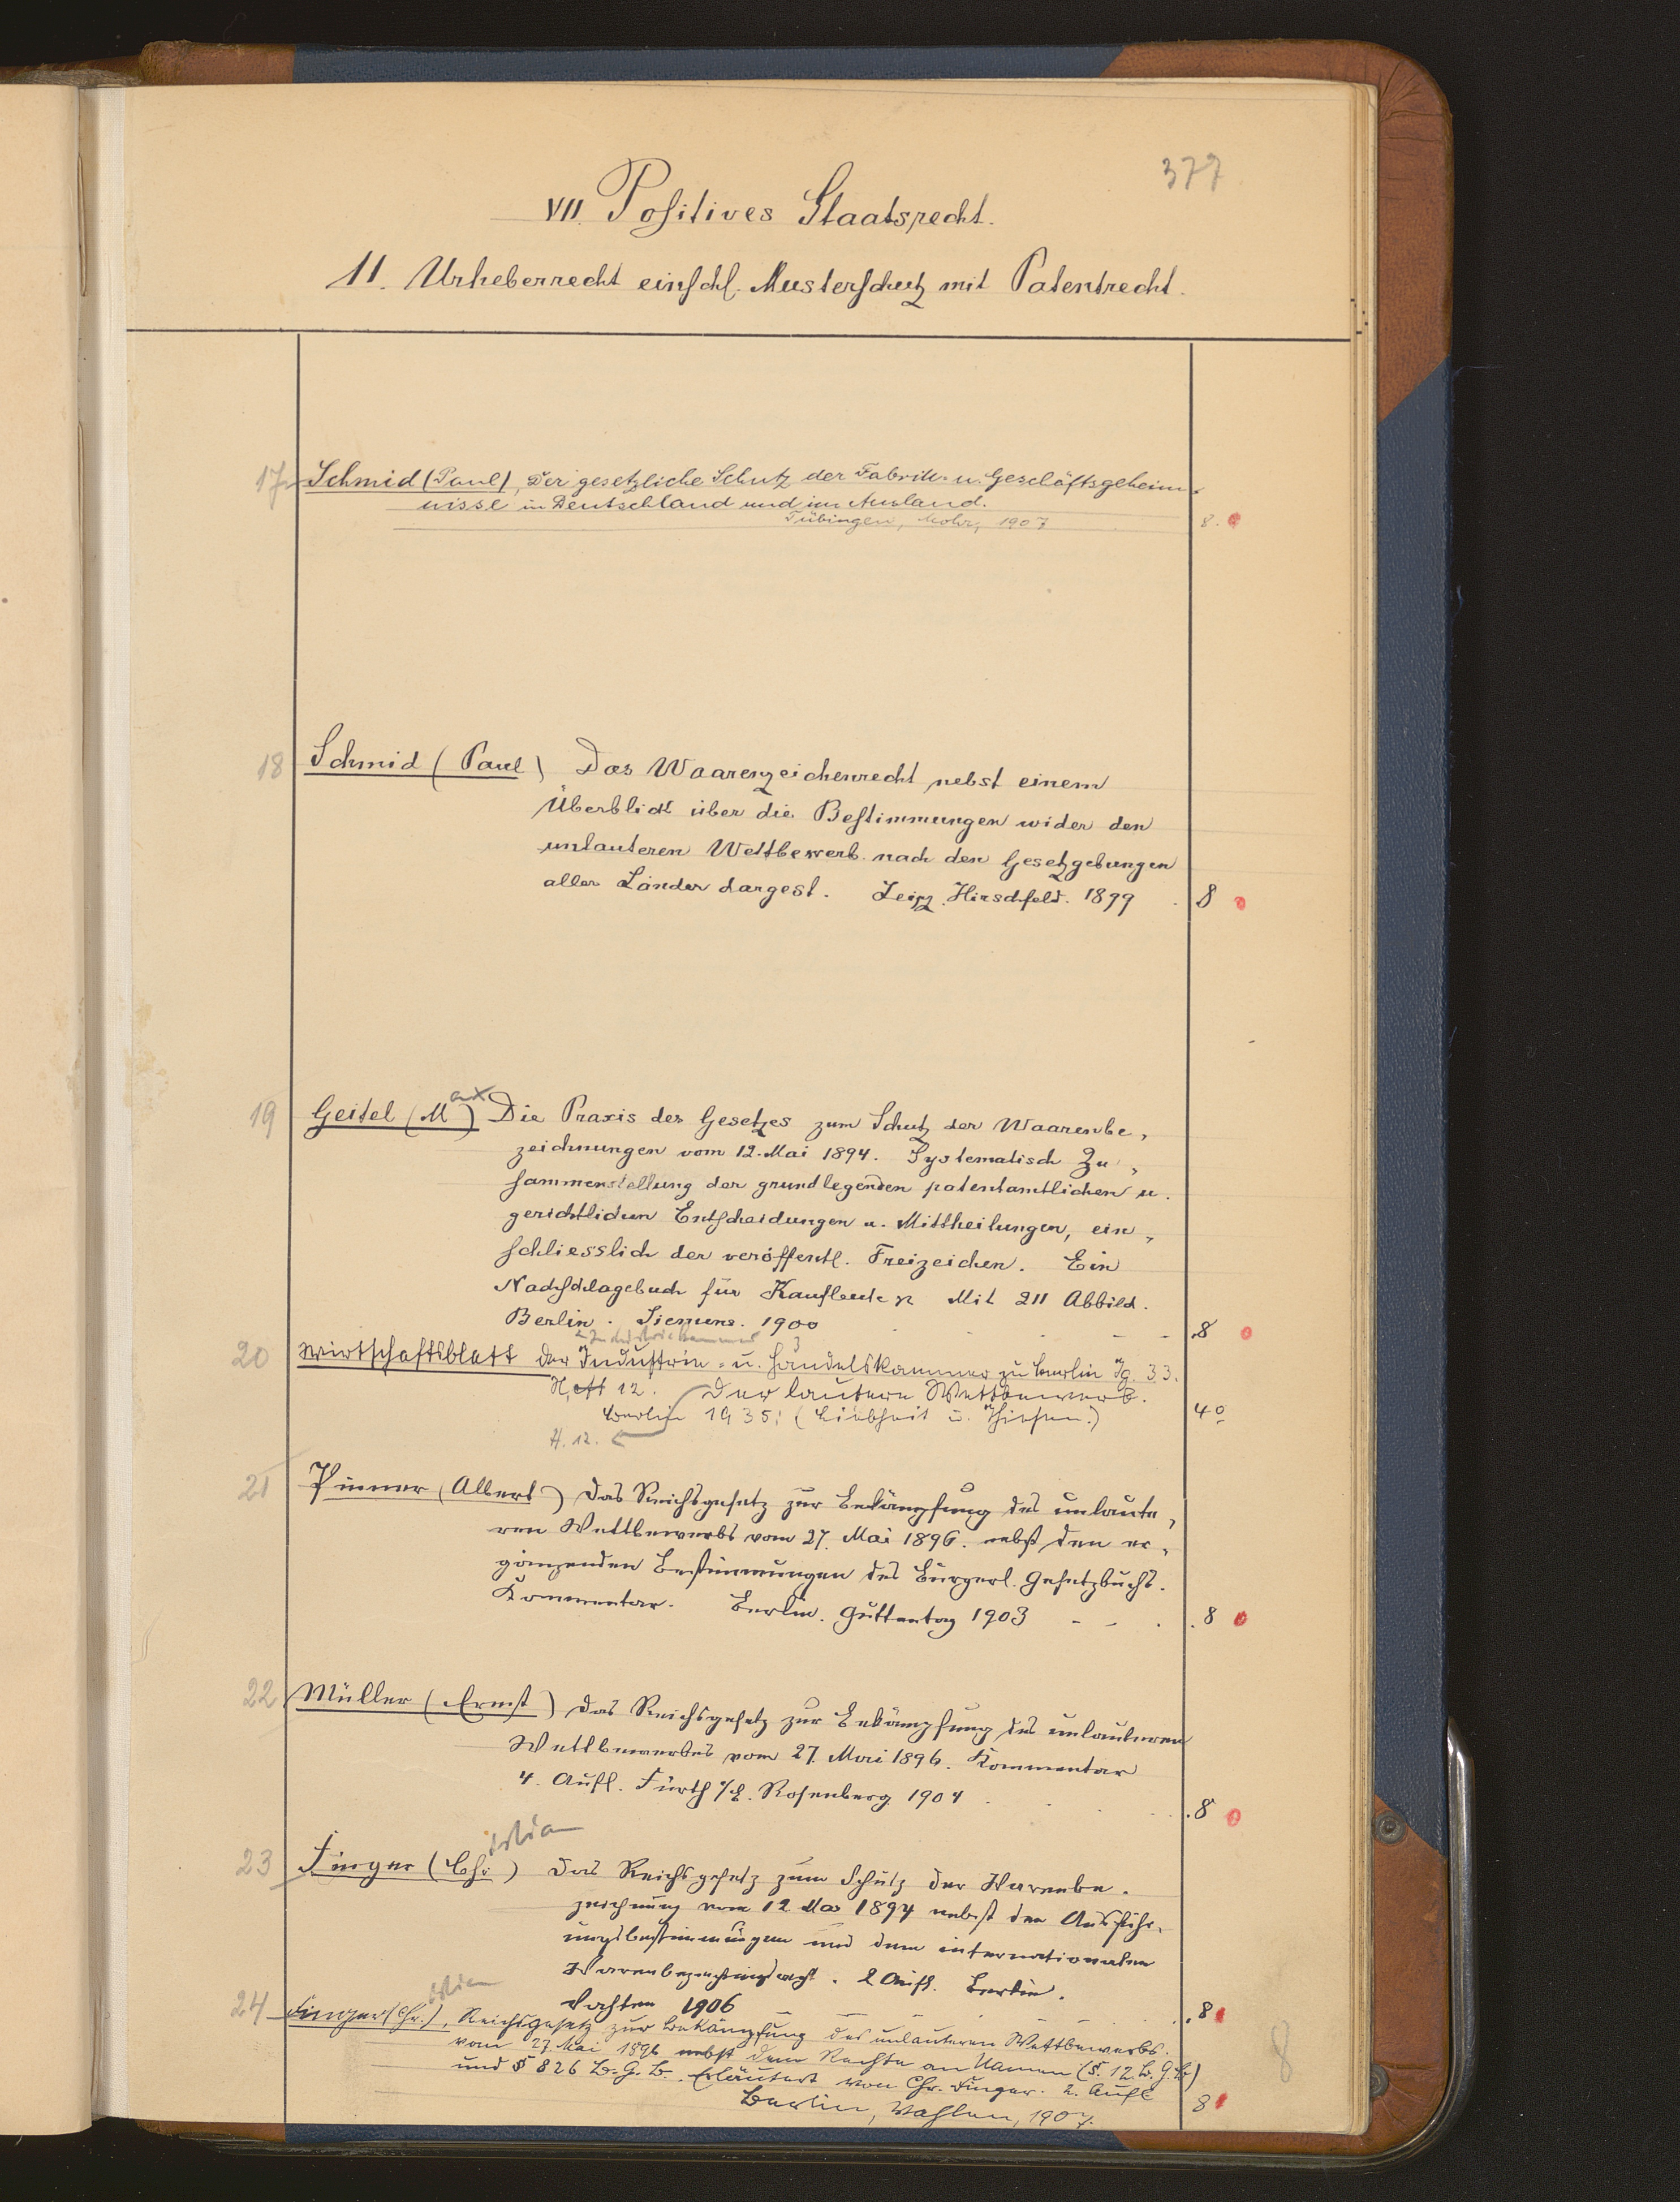 377
VII. Positives Staatsrecht.
11. Urheberrecht einschl. Musterschutz mit Patentrecht.
17 Schmid (Paul), Der gesetzliche Schutz der Fabrik- u. Geschäftsgeheim-
nisse in Deutschland und im Ausland.
Tübingen, Mohr, 1907 8.
18 Schmid (Paul) Das Waarenzeichenrecht nebst einem
Überblick über die Bestimmungen wider den
unlauteren Wettbewerb nach den Gesetzgebungen
aller Länder dargest. Leipz. Hirschfeld. 1899 8
19 Geitel (Max) Die Praxis des Gesetzes zum Schutz der Waarenbe-
zeichnungen vom 12. Mai 1894. Systematisch Zu-
sammenstellung der grundlegenden patentamtlichen u.
gerichtlichen Entscheidungen u. Mittheilungen, ein-
schliesslich der veröffentl. Freizeichen. Ein
Nachschlagebuch für Kaufleute Mit 211 Abbild.
Berlin. Siemens. 1900 8
20 Wirtschaftsblatt der Industrie- u. Handelskammer zu Berlin Jg. 33.
Heft 12. Der lautere Wettbewerb.
Berlin 1935: (Liebheit u. Thiesen.) 4°
H. 12.
21 Pinner (Albert) Das Reichsgesetz zur Bekämpfung des unlaute-
ren Wettbewerbs vom 27. Mai 1896. nebst den er-
gänzenden Bestimmungen des Bürgerl. Gesetzbuchs.
Kommentar. Berlin. Guttentag 1903 8
22 Müller (Ernst) Das Reichsgesetz zur Bekämpfung des unlauteren
Wettbewerbes vom 27. Mai 1896. Kommentar
4. Aufl. Fürth Rosenberg 1904 8
23 Finger (Christian) Das Reichsgesetz zum Schutz der Warenbe-
zeichnung vom 12 Mai 1894 nebst den Ausführ-
ungsbestimmungen und dem internationalen
2 Aufl. Berlin.
Vahlen 1906 8
24 Finger (Christian), Reichsgesetz zur Bekämpfung des unlauteren Wettbewerbs.
vom 27. Mai 1896 nebst dem Rechte am Namen (§. 12 B. G. B)
und § 826 B. G. B. Erläutert von Chr. Finger. 2. Aufl
Berlin, Vahlen, 1907. 8
8